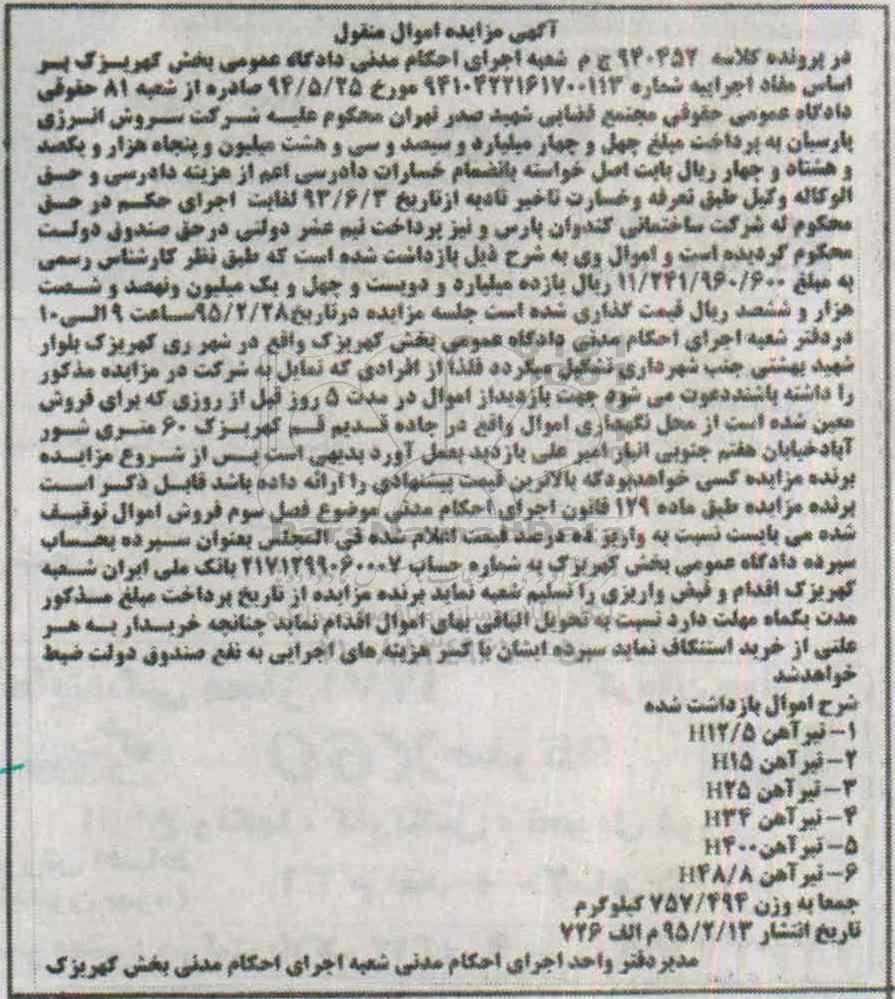 آگهی مزایده اموال منقول
در پرونده کلاسه ۹۴۰۴۵۲ ج م شعبه اجرای احکام مدنی دادگاه عمومی بخش کهریزک بر
اساس مفاد اجراییه شماره ۹۴۱۰۴۲۲۱۶۱۷۰۰۱۱۳ مورخ ۹۴/۵/۲۵ صادره از شعبه ۸۱ حقوقی
دادگاه عمومی حقوقی مجتمع قضایی شهید صدر تهران محکوم علیه شرکت سروش انرژی
پارسیان به پرداخت مبلغ چهل و چهار میلیارد و سیصد و سی و هشت میلیون و پنجاه هزار و یکصد
و هشتاد و چهار ریال بابت اصل خواسته بانضمام خسارات دادرسی اعم از هزینه دادرسی و حق
الوکاله وکیل طبق تعرفه وخسارت تاخیر تادیه ازتاریخ ۹۳/۶/۳ لغایت اجرای حکم در حق
محکوم له شرکت ساختمانی کندوان پارس و نیز پرداخت نیم عشر دولتی درحق صندوق دولت
محکوم گردیده است و اموال وی به شرح ذیل بازداشت شده است که طبق نظر کارشناس رسمی
به مبلغ ۱۱/۲۴۱/۹۶۰/۶۰۰ ریال یازده میلیارد و دویست و چهل و یک میلیون ونهصد و شصت
هزار و ششصد ریال قیمت گذاری شده است جلسه مزایده درتاریخ۹۵/۲/۲۸ساعت ۹ الی۱۰
دردفتر شعبه اجرای احکام مدنی دادگاه عمومی بخش کهریزک واقع در شهر ری کهریزک بلوار
شهید بهشتی جنب شهرداری تشکیل میگردد فلذا از افرادی که تمایل به شرکت در مزایده مذکور
را داشته باشنددعوت می شود جهت بازدیداز اموال در مدت ۵ روز قبل از روزی که برای فروش
معین شده است از محل نگهداری اموال واقع در جاده قدیم قم کهریزک ۶۰ متری شور
آبادخیابان هفتم جنوبی انبار امیر علی بازدید بعمل آورد بدیهی است پس از شروع مزایده
برنده مزایده کسی خواهدبودکه بالاترین قیمت پیشنهادی را ارائه داده باشد قابل ذکر است
برنده مزایده طبق ماده ۱۲۹ قانون اجرای احکام مدنی موضوع فصل سوم فروش اموال توقیف
شده می بایست نسبت به واریز ده درصد قیمت اعلام شده فی المجلس بعنوان سپرده بحساب
سپرده دادگاه عمومی بخش کهریزک به شماره حساب ۲۱۷۱۲۹۹۰۶۰۰۰۷ بانک ملی ایران شعبه
کهریزک اقدام و فیش واریزی را تسلیم شعبه نماید برنده مزایده از تاریخ پرداخت مبلغ مذکور
مدت یکماه مهلت دارد نسبت به تحویل الباقی بهای اموال اقدام نماید چنانچه خریدار به هر
علتی از خرید استنکاف نماید سپرده ایشان با کسر هزینه های اجرایی به نفع صندوق دولت ضبط
خواهدشد
شرح اموال بازداشت شده
۱- تیرآهن H۱۲/۵
۲- تیرآهن H۱۵
۳- تیرآهن H۲۵
۴- تیرآهن H۳۴
۵- تیرآهن H۴۰۰
۶- تیرآهن H۴۸/۸
جمعا به وزن ۷۵۷/۴۹۴ کیلوگرم
تاریخ انتشار ۹۵/۲/۱۳ م الف ۷۲۶
مدیر دفتر واحد اجرای احکام مدنی شعبه اجرای احکام مدنی بخش کهریزک